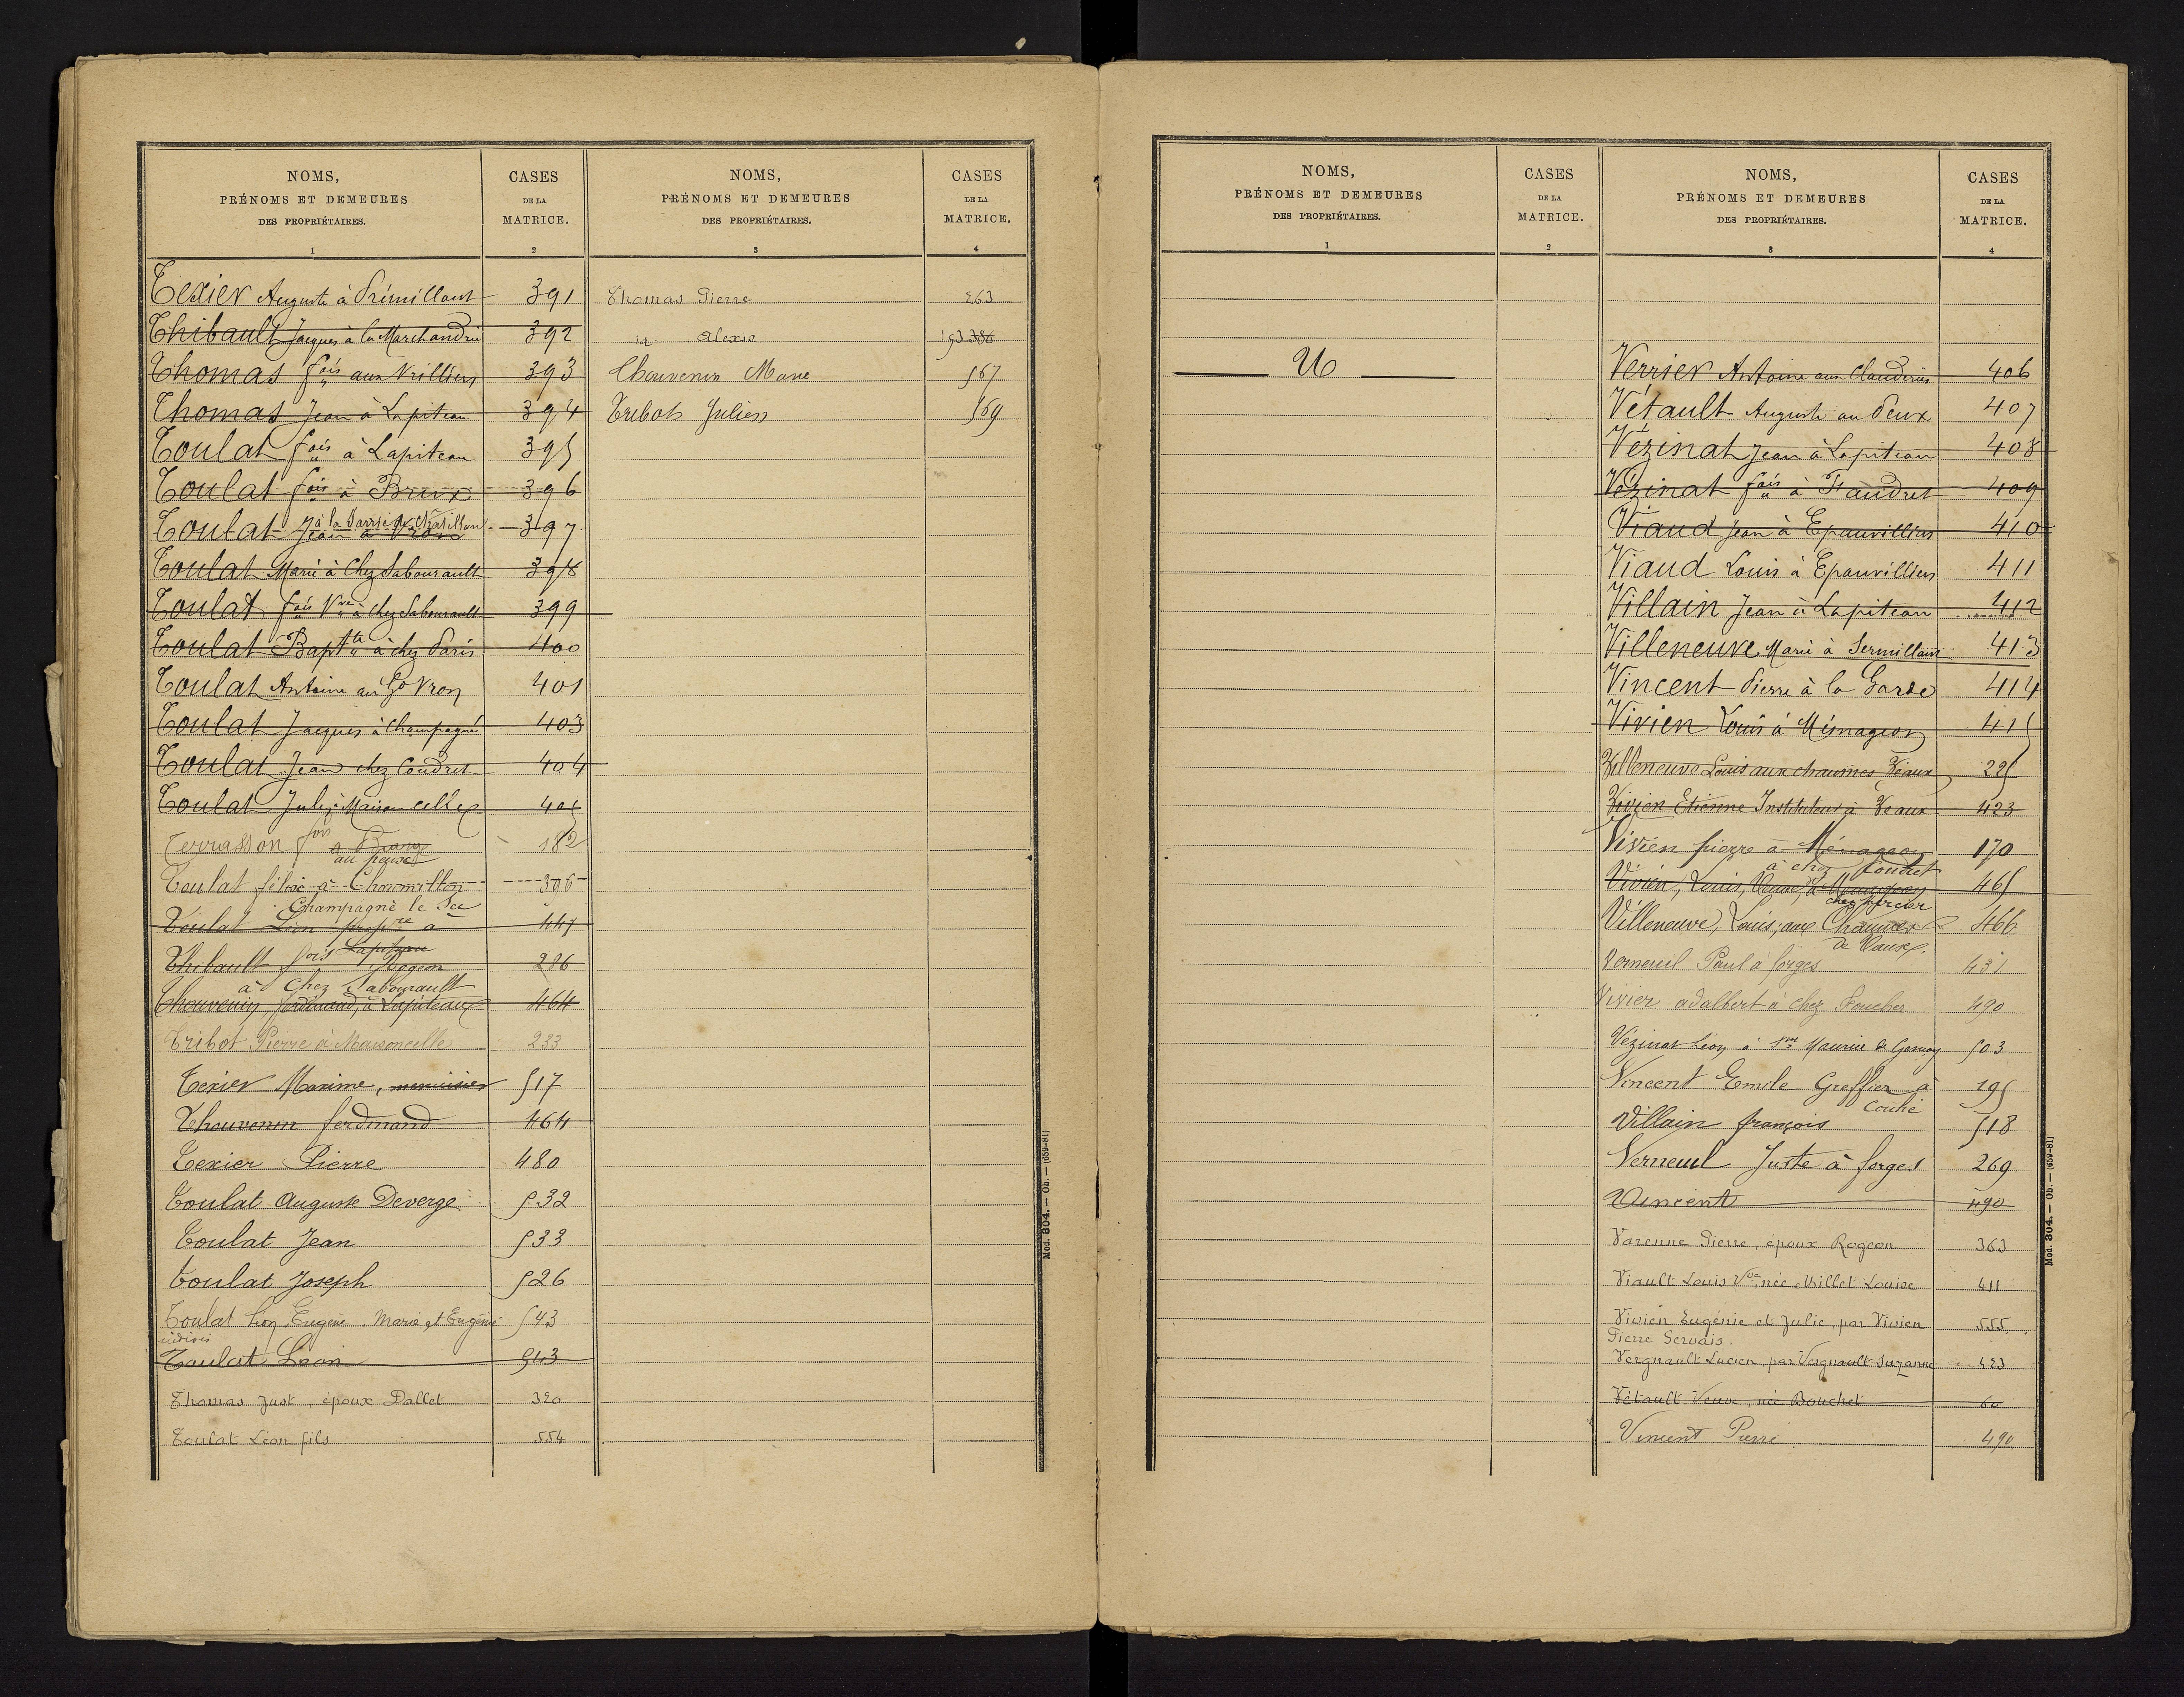 NOMS,
PRÉNOMS ET DEMEURES
DES PROPRIÉTAIRES.
1
CASES
DE LA
MATRICE.
2
NOMS,
PRÉNOMS ET DEMEURES
DES PROPRIÉTAIRES.
3
CASES
DE LA
MATRICE.
4
Texier Auguste à Prémillant 391
Thibault Jacques à la Marchandrie 392
Thomas fois aux Vrilliers 393
Thomas Jean à Lapiteau 394
Toulat fois à Lapiteau 395
Toulat fois à Brux 396
à la Barre de Chatillon
Toulat Jean à Vron 397
Toulat Marie à Chez Sabourault 398
Toulat fois Vve à chez Sabourault 399
Toulat Baptte à chez Paris 400
Toulat Antoine au Gd Vron 401
Toulat Jacques à Champagné 403
Toulat Jean chez Coudret 404
Toulat Jules à Maisoncelles 405
Terrasson fois 182
Toulat félix à Chaumillon 396
Champagné le Sec
Toulat Léon propre à 447
Thibault fois Lapiteau 286
Rogeon
à Chez Sabourault
Thouvenin, ferdinand, à Lapiteaux 464
Tribot Pierre à Maisoncelle 233
Texier Maxime, menuisier 517
Thouvenin ferdinand 464
Texier Pierre 480
Toulat Auguste Devergé 532
Toulat Jean 533
Toulat Joseph 526
Toulat Léon Eugène Marie et Eugénie 543
indivis
Toulat Léon 543
Thomas Just, époux Dallet 320
Toulat Léon fils 554
Thomas Pierre 263
id Alexis 193 386
Thouvenin Marie 567
Tribot Julien 569
Mod. 304. — Ob. — (659-81)
NOMS,
PRÉNOMS ET DEMEURES
DES PROPRIÉTAIRES.
1
CASES
DE LA
MATRICE.
2
NOMS,
PRÉNOMS ET DEMEURES
DES PROPRIÉTAIRES.
3
CASES
DE LA
MATRICE.
4
U
Verrier Antoine aux Clauderies 406
Vétault Auguste au Peux 407
Vézinat Jean à Lapiteau 408
Vézinat fois à 409
Viaud Jean à Epanvilliers 410
Viaud Louis à Epanvilliers 411
Villain Jean à Lapiteau 412
Villeneuve Marie à 413
Vincent Pierre à la Garde 414
Vivien Louis à Ménageon 415
Villeneuve Louis aux chaumes Veaux 225
Vivien Etienne Instituteur à Veaux 423
Vivien pierre à Ménageon 170
à chez
Vivien, Louis, Veuve, à Ménageon 465
chez Mercier
Villeneuve, Louis, aux Chaumes 466
de Vaux.
Verneuil Paul à forges 431
Vivier adalbert à chez Foucher 490
Vézinat Léon à St Maurice de Gençay 503
Vincent Emile Greffier à 195
Couhé
Villain françois 518
Verneuil Juste à forges 269
Vincent 490
Varenne Pierre, époux Rogeon 363
Viault Louis Vve née Millet Louise 411
Vivien Eugénie et Julie, par Vivien 555
Pierre Gervais.
Vergnault Lucien, par Vergnault Suzanne 423
Vétault Veuve, née Bouchet 60
Vincent Pierre 490
Mod. 304. — Ob. — (659-81)